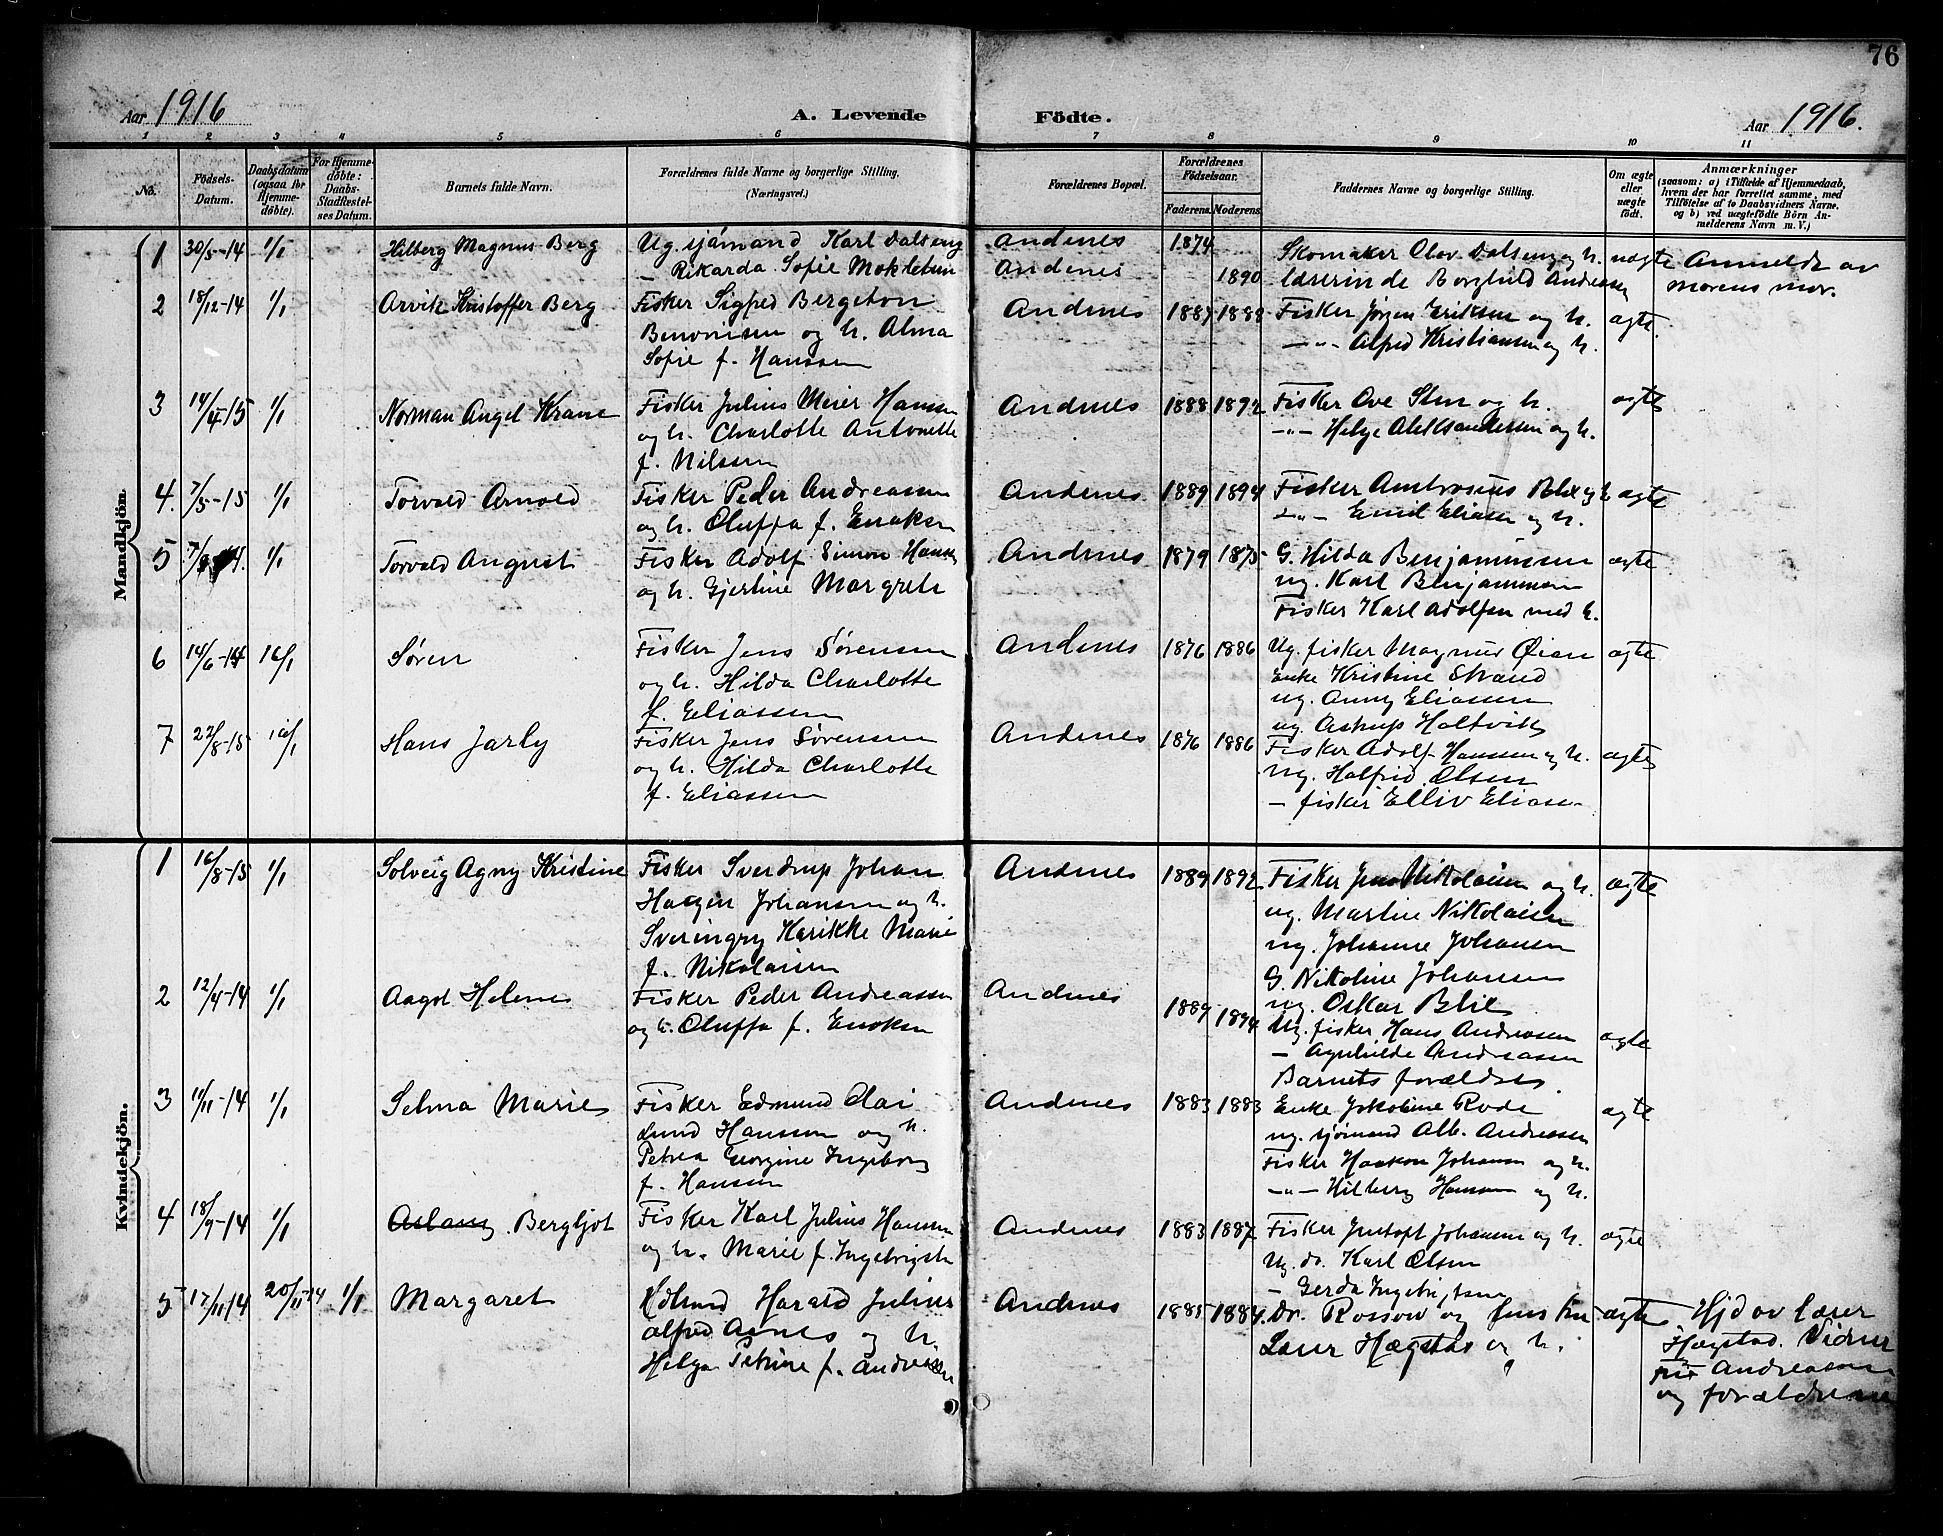 76
Aar 1916
A. Levende
Födte.
Aar 1916.
1 2 3 4 5 6 7 8 9 10 11
No.
Födsels-
Datum.
Daabsdatum
(ogsaa for
Hjemme-
döbte).
For Hjemme-
döbte:
Daabs-
Stadfæstel-
ses Datum.
Barnets fulde Navn.
Forældrenes fulde Navne og borgerlige Stilling.
(Næringsvei.)
Forældrenes Bopæl.
Forældrenes
Födselsaar.
Faderens. Moderens.
Faddernes Navne og borgerlige Stilling.
Om ægte
eller
uægte
födt.
Anmærkninger
(saasom: a) i Tilfælde af Hjemmedaab,
hvem der har forrettet samme, med
Tilföielse af to Daabsvidners Navne.
og b) ved uægtefödte Börn An-
melderens Navn m. V.)
Mandkjön.
1 30/5-14 1/1 Hilberg Magnus Berg
Ug. sjömand Karl Dalseng
— Rikarda Sofie
Andenes
Andenes
1874
1890
Skomaker Olav Dalseng og h.
lærerinde Borghild Andreassen
uægte
Anmeldt av
morens mor.
2 18/12-14 1/1 Arvik Kristoffer Berg
Fisker Sigfred Bergeton
og h. Alma
Sofie f. Hanssen
Andenes 1887 1888
Fisker Jörgen Eriksen og h.
—"— Alfred Kristiansen og h.
ægte
3 14/4-15 1/1 Norman Angel Krane
Fisker Julius Meier Hansen
og h. Charlotte Antonette
f. Nilssen
Andenes 1888 1892
Fisker Ove Sten og h.
—"— Helge Aleksandersen og h.
ægte
4. 7/5-15 1/1 Torvald Arnold
Fisker Peder Andreassen
og h. Oluffa f. Enoksen
Andenes 1889 1894
Fisker Ambrosius Blix og h
—"— Emil Eliasen og h.
ægte
5 1/1 Torvald August
Fisker Adolf Simon Hansen
og h. Gjertine Margrete
Andenes 1879 1875
G. Hilda Benjaminsen
ug. Karl Benjaminsen
Fisker Karl Adolfsen med h.
ægte
6 14/6-14 16/1 Sören
Fisker Jens Sørensen
og h. Hilda Charlotte
f. Eliassen
Andenes 1876 1886
Ug. fisker Magnus Øien
Enke Kristine Strand
ug. Anny Eliassen
ug. Astrup Holtvik
ægte
7 22/8-15 16/1 Hans Jarly
Fisker Jens Sørensen
og h. Hilda Charlotte
f. Eliassen
Andenes 1876 1886
Fisker Adolf Hanssen og h.
ug. Halfrid Olsen
— fisker Elliv Eliasen
ægte
Kvindekjön.
1 16/8-15 1/1 Solveig Agny Kristine
Fisker Sverdrup Johan
Haagen Johansen og h.
Karikke Marie
f. Nikolaisen
Andenes 1889 1892
Fisker Jens Nikolaisen og h.
ug. Martin Nikolaisen
ug. Johanne Johansen
G. Nikoline Johansen
ægte
2 12/4-14 1/1 Aagot Helene
Fisker Peder Andreassen
og h. Oluffa f. Enoksen
Andenes 1889 1894
ug. Oskar Blix
Ug. fisker Hans Andreasen
— Andreassen
Barnets forældre.
ægte
3 11/11-14 1/1 Selma Marie
Fisker Edmund Olai
Lund Hanssen og h.
Petrea Georgine Ingeborg
f. Hansen
Andenes 1883 1883
Enke Jakobine Rode
ug. sjömand Alb. Andreasen
Fisker Haakon Johansen og h.
—"— Hilberg Hansen og h.
ægte
4 18/9-14 1/1 Aslaug. Bergljot
Fisker Karl Julius Hansen
og h. Marie f. Ingebrigtsen
Andenes 1883 1887
Fisker Johansen og h.
Ug. do. Karl Olsen
— Gerda Ingebrigtsen
ægte
5 17/11-14 20/11-14 1/1 Margaret
Harald Julius
Alfred Agnes og h.
Helga Petrine f. Andreassen
Andenes 1885 1884.
Dr. Rossow og
Lærer Hægstad og h.
ægte
Hjd av lærer
Hægstad. Vidner
Andreasen
og forældrene